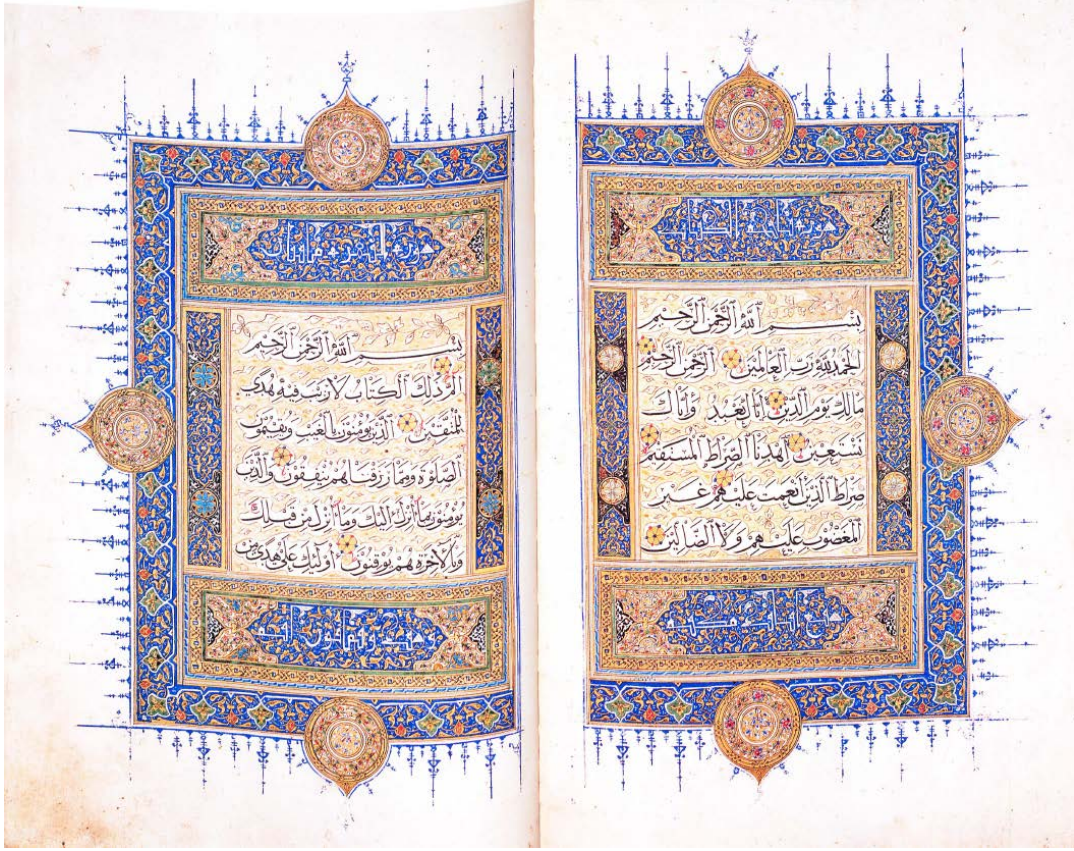 سورة فاتحة الكتاب
بِسْمِ ٱللَّهِ ٱلرَّحْمٰنِ ٱلرَّحِيمِ
ٱلْحَمْدُ لِلَّهِ رَبِّ ٱلْعَالَمِينَ ٱلرَّحْمٰنِ ٱلرَّحِيمِ
مَالِكِ يَوْمِ ٱلدِّينِ إِيَّاكَ نَعْبُدُ وَإِيَّاكَ
نَسْتَعِينُ ٱهْدِنَا ٱلصِّرَاطَ ٱلْمُسْتَقِيمَ
صِرَاطَ ٱلَّذِينَ أَنْعَمْتَ عَلَيْهِمْ غَيْرِ
ٱلْمَغْضُوبِ عَلَيْهِمْ وَلَا ٱلضَّالِّينَ
سبع ايات مكية
سورة البقرة مايتان
بِسْمِ ٱللَّهِ ٱلرَّحْمٰنِ ٱلرَّحِيمِ
الٓمٓ ذٰلِكَ ٱلْكِتَابُ لَا رَيْبَ فِيهِ هُدًى
لِلْمُتَّقِينَ ٱلَّذِينَ يُؤْمِنُونَ بِٱلْغَيْبِ وَيُقِيمُونَ
ٱلصَّلٰوةَ وَمِمَّا رَزَقْنَاهُمْ يُنْفِقُونَ وَٱلَّذِينَ
يُؤْمِنُونَ بِمَا أُنْزِلَ إِلَيْكَ وَمَا أُنْزِلَ مِنْ قَبْلِكَ
وَبِٱلْآخِرَةِ هُمْ يُوقِنُونَ أُولٰئِكَ عَلَىٰ هُدًى مِنْ
وثمانون اية